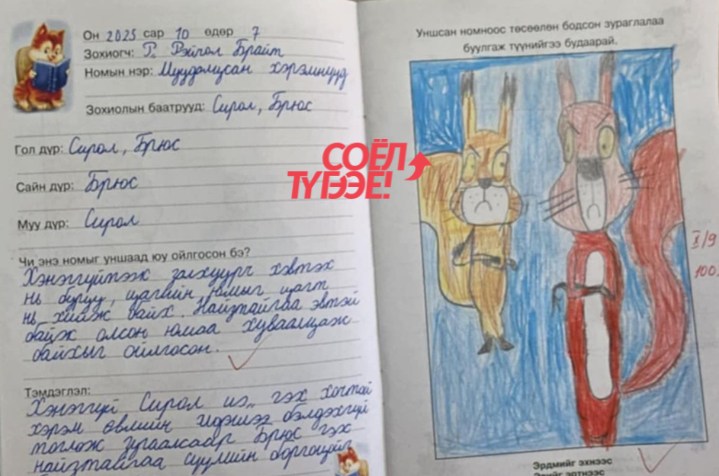 Он 2025 сар 10 өдөр 7
Зохиогч: Г. Рэйчол Брайт
Номын нэр: Муудалцсан хэрэмнүүд
Зохиолын баатрууд: Сирол, Брюс
Гол дүр: Сирол, Брюс
Сайн дүр: Брюс
Муу дүр: Сирол
Чи энэ номыг уншаад юу ойлгосон бэ?
Хэнэггүйтэж залхуурч хэвтэх
нь буруу, цагийн юмыг цагт
нь хийж байх. Найзтайгаа эвтэй
байж олсон юмаа хуваалцаж
байхыг ойлгосон.
Тэмдэглэл:
Хэнэггүй Сирол гэх хочтой
хэрэм өвлийн идшээ бэлдэхгүй
тоглож зугаалсаар Брюс гэх
найзтайгаа сүүлийн боргоцойг
СОЁЛ
ТҮГЭЭЕ!
Уншсан номноос төсөөлөн бодсон зураглалаа
буулгаж түүнийгээ будаарай.
I/9
100
Эрдмийг эхнээс